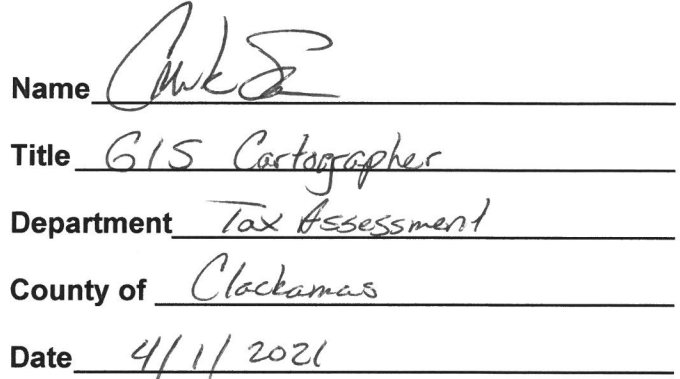 Name
Title GIS Cartographer
Department Tax Assessment
County of Clackamas
Date 4/1/2021